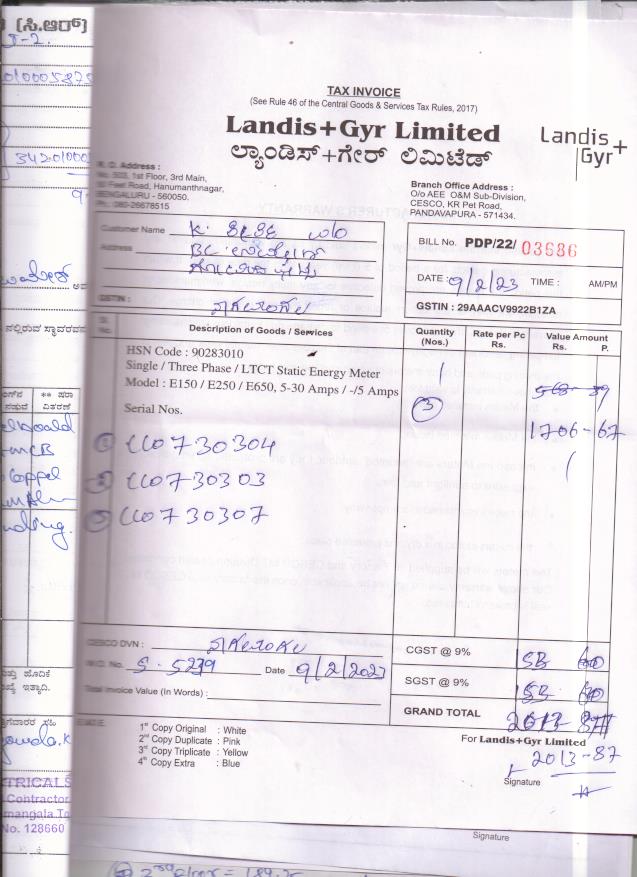 [ಸಿ.ಆರ್]
TAX INVOICE
(See Rule 46 of the Central Goods & Services Tax Rules, 2017)
Landis+Gyr Limited
ಲ್ಯಾಂಡಿಸ್+ಗೇರ್ ಲಿಮಿಟೆಡ್
Landis
Gyr+
R. O. Address :
No. 503, 1st Floor, 3rd Main,
Feet Road, Hanumanthnagar,
BENGALURU - 560050.
Ph.: 080-26678515
Branch Office Address :
O/o AEE O&M Sub-Division,
CESCO, KR Pet Road,
PANDAVAPURA - 571434.
Customer Name K.
Address
GSTIN :
BILL No. PDP/22/ 03686
DATE : 9/2/23 TIME : AM/PM
GSTIN : 29AAACV9922B1ZA
Sl. No. Description of Goods / Services Quantity (Nos.) Rate per Pc Rs. Value Amount Rs. P.
HSN Code : 90283010
Single / Three Phase / LTCT Static Energy Meter
Model : E150 / E250 / E650, 5-30 Amps / -/5 Amps
Serial Nos.
1
3
568-89
1706-67
1 CC0730304
2 CC0730303
3 CC0730307
CESCO DVN :
W.O. No. S-5279 Date 9/2/2023
Total Invoice Value (In Words) :
CGST @ 9% 153 60
SGST @ 9% 153 60
GRAND TOTAL 2013 87
1st Copy Original : White
2nd Copy Duplicate : Pink
3rd Copy Triplicate : Yellow
4th Copy Extra : Blue
For Landis+Gyr Limited
2013-87
Signature
Signature
** ಪರಾ
ವಿತರಣೆ
TRICALS
Contractor
No. 128660